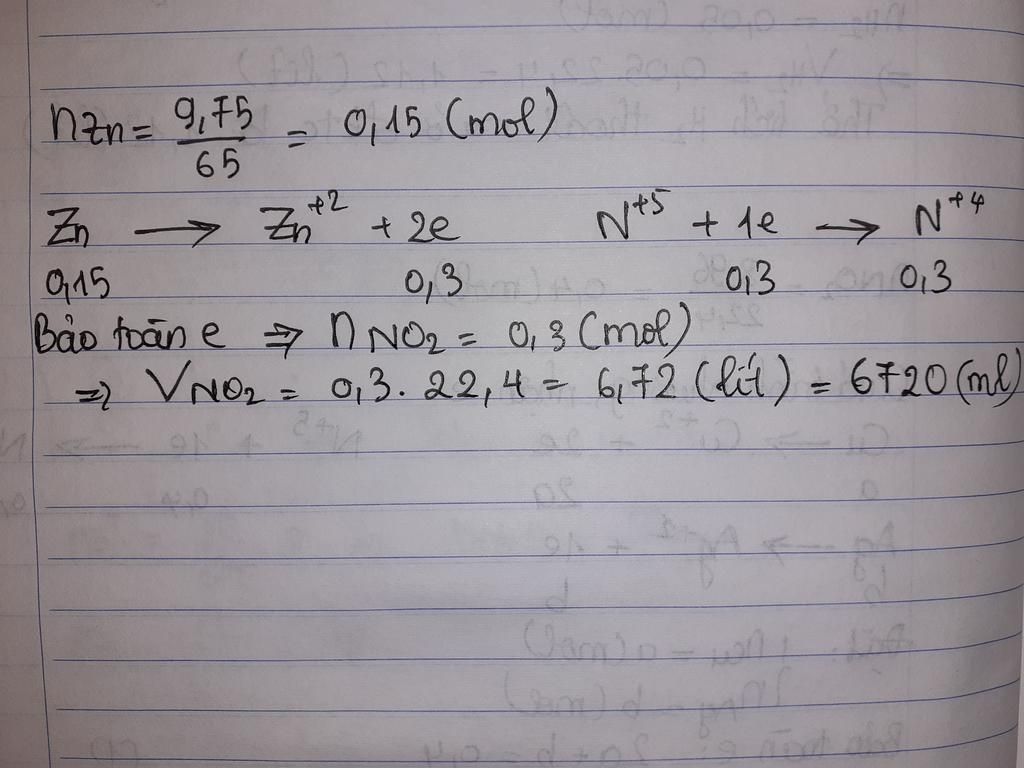 nZn = 9,75/65 = 0,15 (mol)
Zn → Zn⁺² + 2e N⁺⁵ + 1e → N⁺⁴
0,15 0,3 0,3 0,3
Bảo toàn e ⇒ nNO₂ = 0,3 (mol)
⇒ VNO₂ = 0,3 . 22,4 = 6,72 (lít) = 6720 (ml)